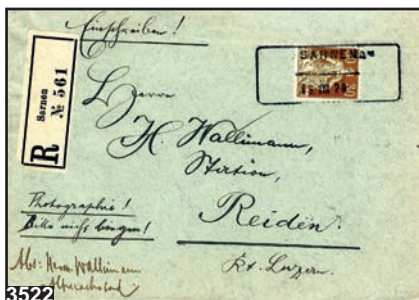 Einschreiben!
R
Sarnen
№ 561
SARNEN
15 III 24
Herrn
H. Wallimann,
Station,
Reiden.
Kt. Luzern.
Photographie!
Bitte nicht biegen!
Abs: Herm. Wallimann
Alpnachstad
3522